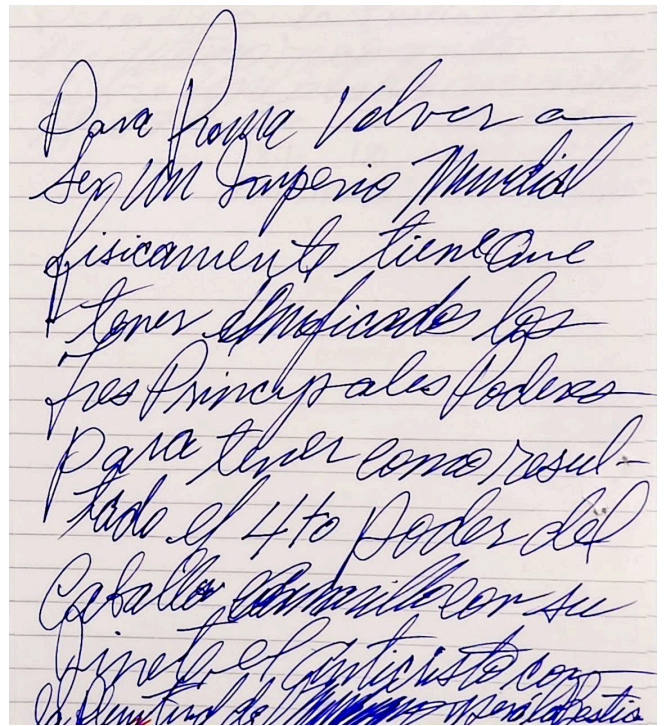 Para Roma Volver a
Ser un Imperio Mundial
físicamente tiene que
tener Unificados los
Tres Principales Poderes
para tener como resul-
tado el 4to poder del
Caballo Amarillo con su
Jinete el anticristo con
la del